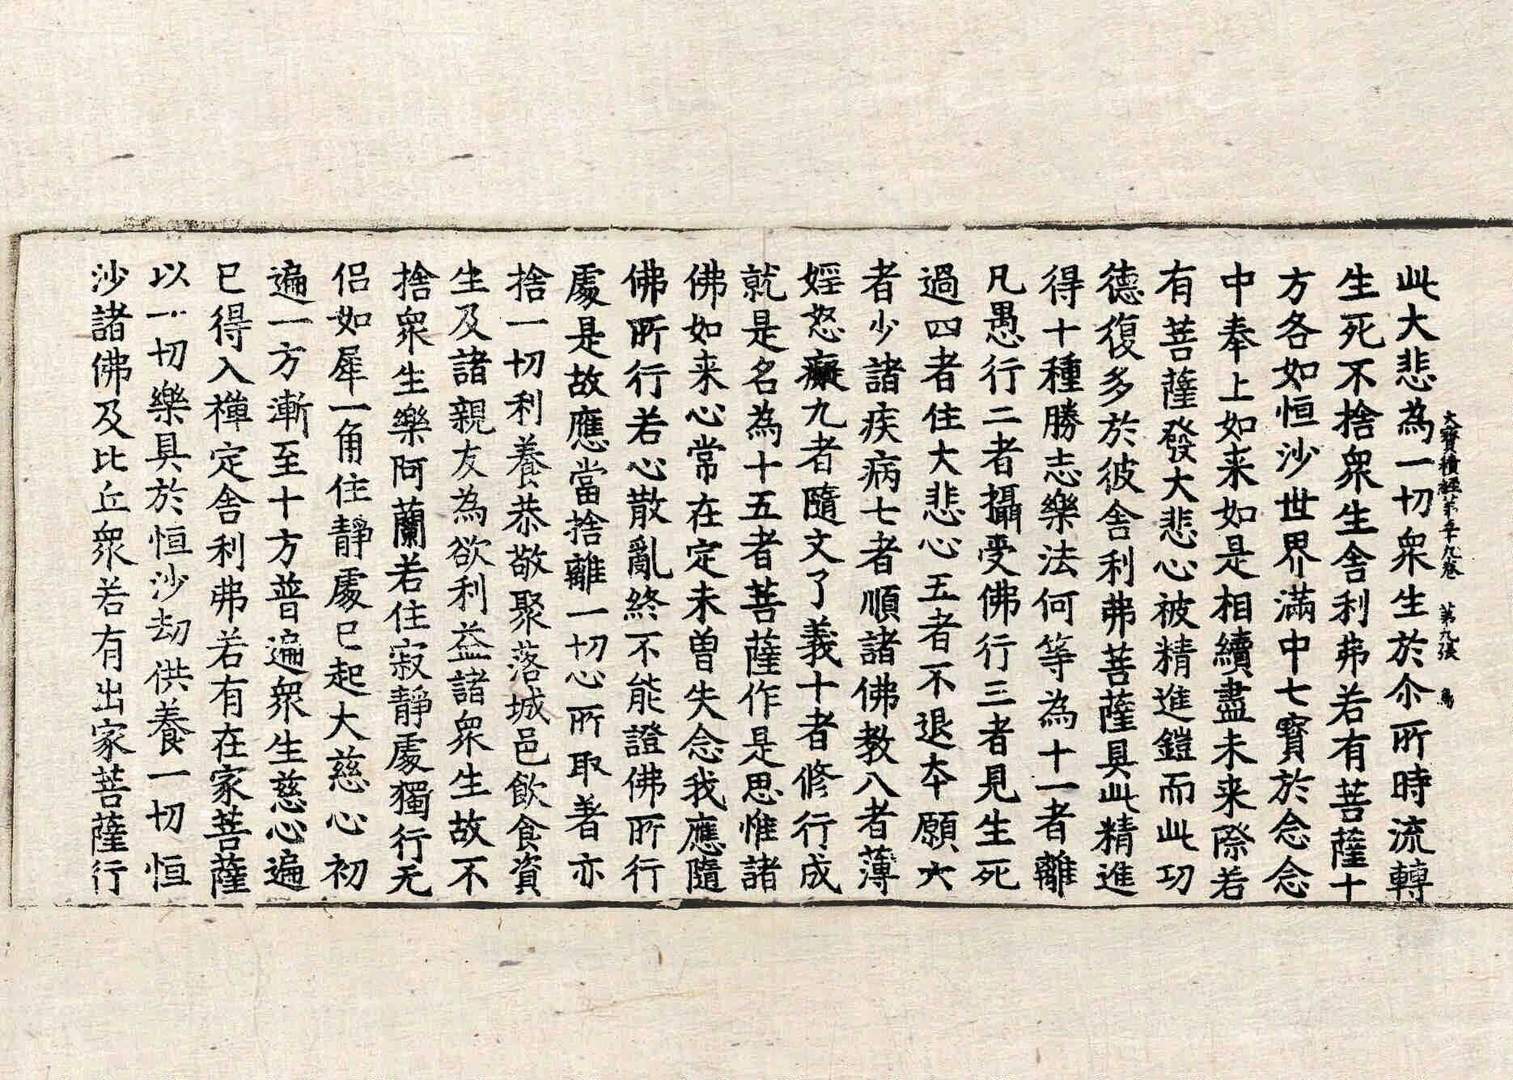 大寶積經第五十九卷 第九張 鳥
此大悲為一切衆生於尒所時流轉
生死不捨衆生舍利弗若有菩薩十
方各如恒沙世界滿中七寶於念念
中奉上如来如是相續盡未来際若
有菩薩發大悲心被精進鎧而此功
德復多於彼舍利弗菩薩具此精進
得十種勝志樂法何等為十一者離
凡愚行二者攝受佛行三者見生死
過四者住大悲心五者不退本願六
者少諸疾病七者順諸佛教八者薄
婬怒癡九者隨文了義十者修行成
就是名為十五者菩薩作是思惟諸
佛如来心常在定未曽失念我應隨
佛所行若心散亂終不能證佛所行
處是故應當捨離一切心所取著亦
捨一切利養恭敬聚落城邑飲食資
生及諸親友為欲利益諸衆生故不
捨衆生樂阿蘭若住寂静處獨行无
侣如犀一角住静處已起大慈心初
遍一方漸至十方普遍衆生慈心遍
已得入禪定舍利弗若有在家菩薩
以一切樂具於恒沙劫供養一切恒
沙諸佛及比丘衆若有出家菩薩行